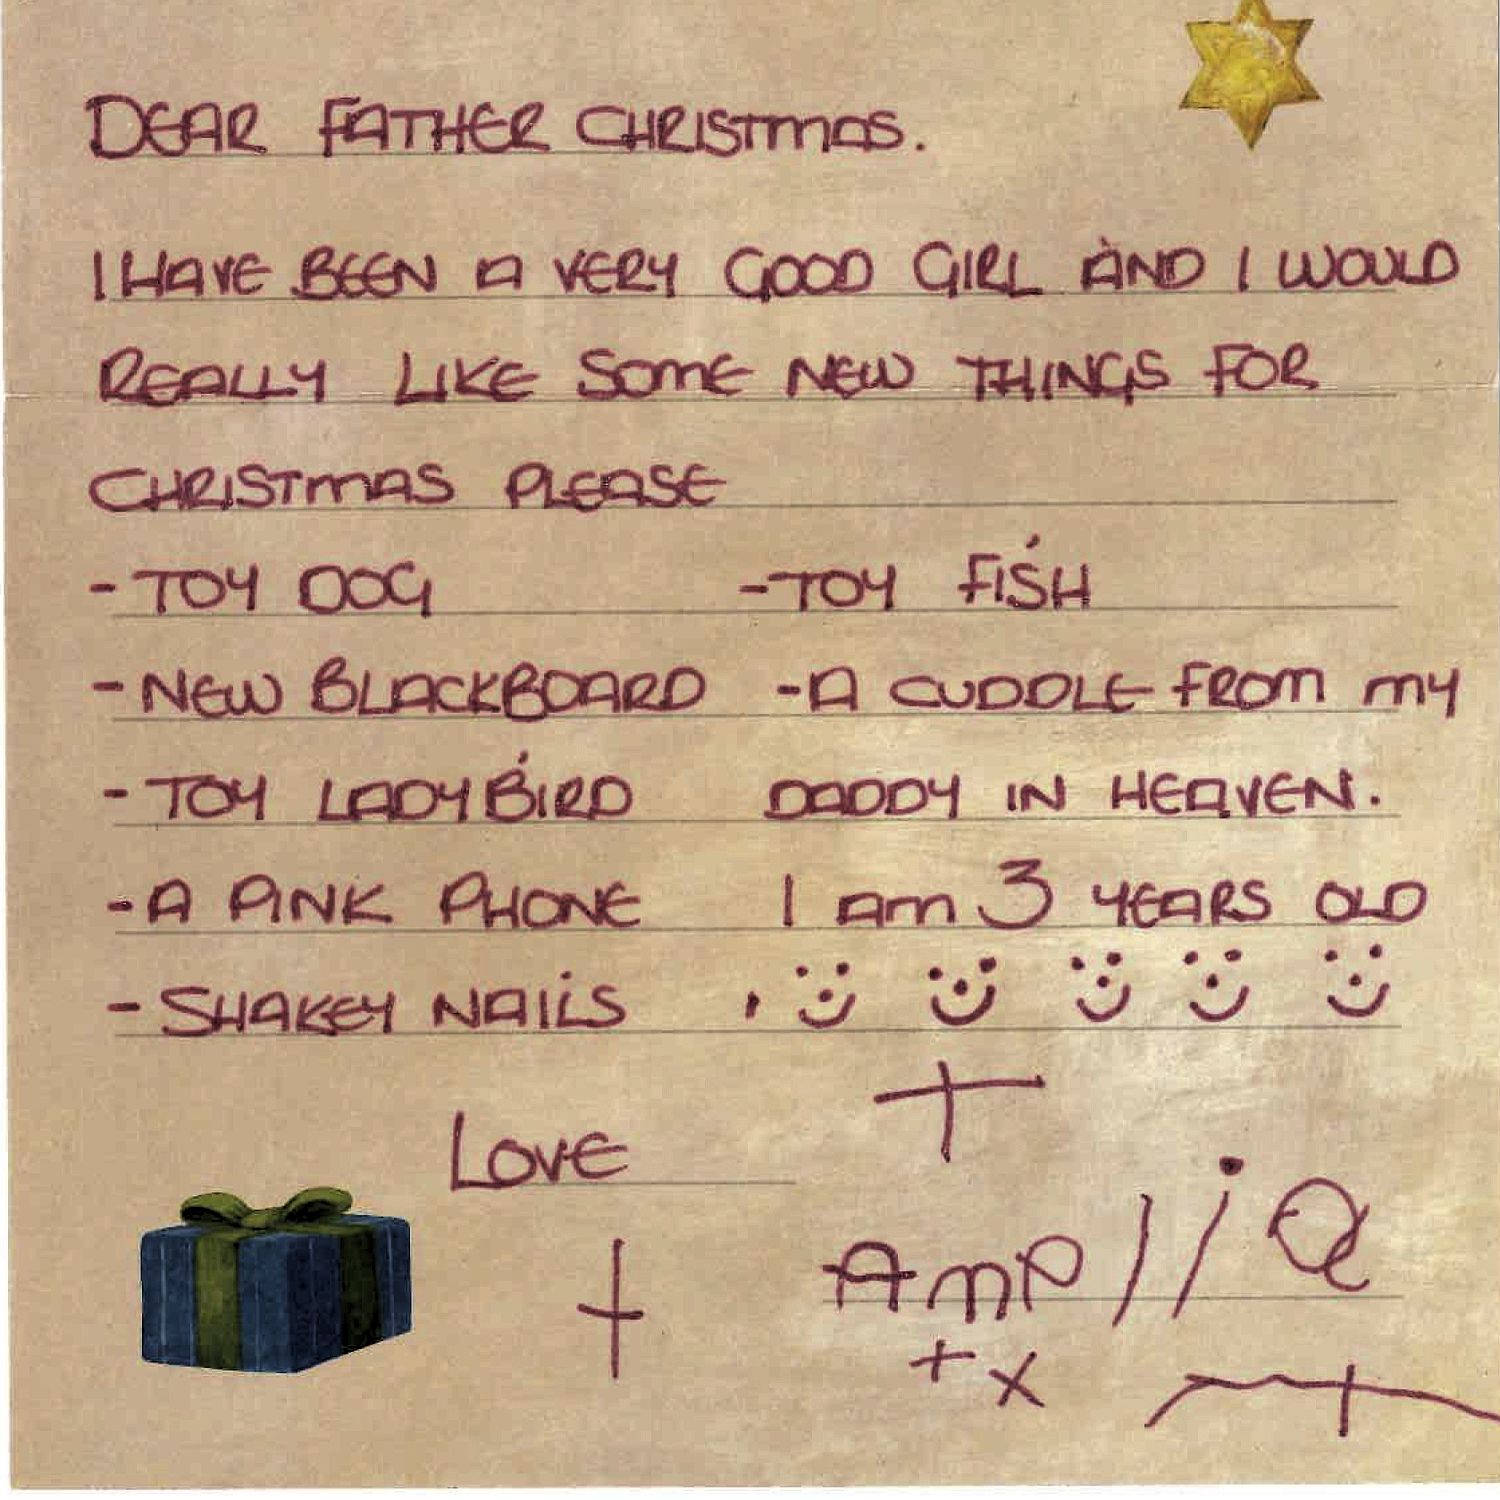 DEAR FATHER CHRISTMAS.
I HAVE BEEN A VERY GOOD GIRL AND I WOULD
REALLY LIKE SOME NEW THINGS FOR
CHRISTMAS PLEASE
- TOY DOG - TOY FISH
- NEW BLACKBOARD - A CUDDLE FROM MY
- TOY LADYBIRD DADDY IN HEAVEN.
- A PINK PHONE I am 3 YEARS OLD
- SHAKEY NAILS
LOVE